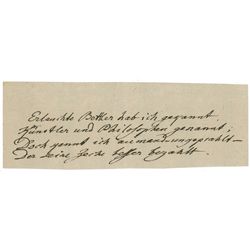 Erlauchte Bettler hab ich gekannt,
Künstler und Philosophen genannt;
Doch ich niemand ungeprahlt —
Der seine Zeche besser bezahlt.